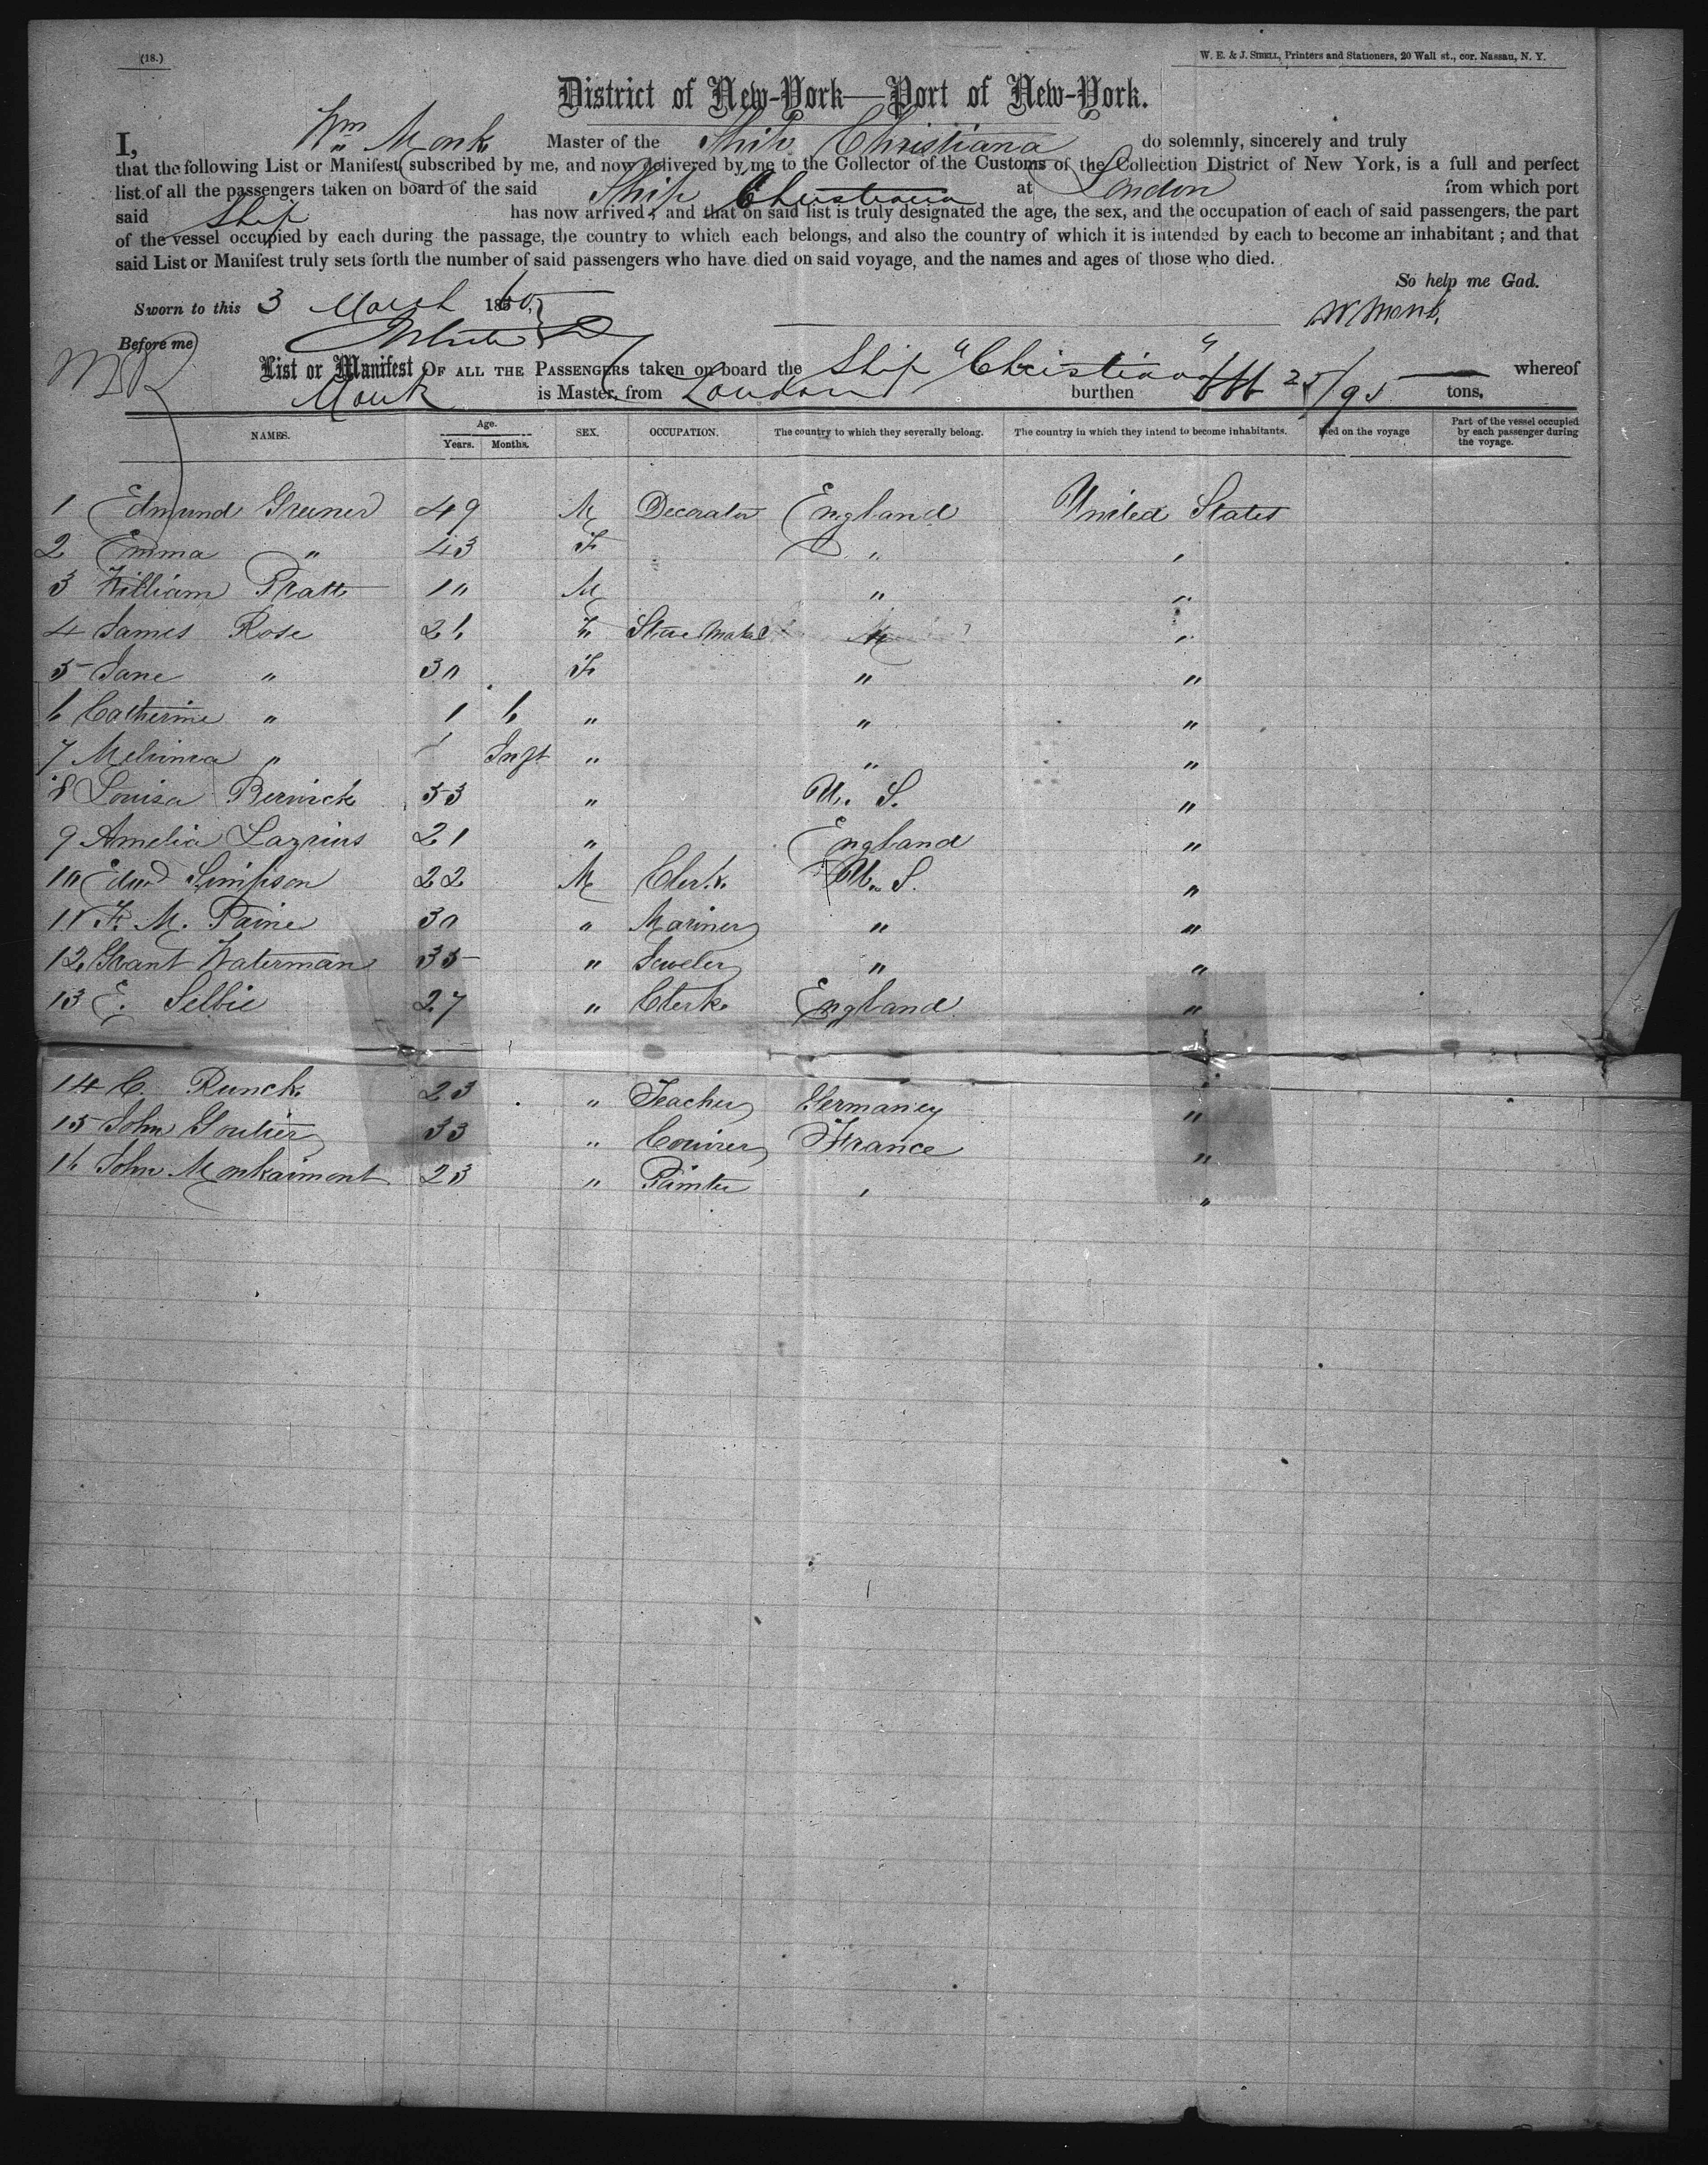 (18.)
W. E. & J. SIBELL, Printers and Stationers, 20 Wall st., cor. Nassau, N. Y.
District of New-York—Port of New-York.
I, Wm Monk Master of the Ship Christiana do solemnly, sincerely and truly
that the following List or Manifest subscribed by me, and now delivered by me to the Collector of the Customs of the Collection District of New York, is a full and perfect
list of all the passengers taken on board of the said Ship Christiana at London from which port
said Ship has now arrived; and that on said list is truly designated the age, the sex, and the occupation of each of said passengers, the part
of the vessel occupied by each during the passage, the country to which each belongs, and also the country of which it is intended by each to become an inhabitant; and that
said List or Manifest truly sets forth the number of said passengers who have died on said voyage, and the names and ages of those who died.
So help me God.
Sworn to this 3 March 1860,
W Monk
Before me
List or Manifest OF ALL THE PASSENGERS taken on board the Ship "Christiana" whereof
Monk is Master, from London burthen 666 25/95 tons.
NAMES. Age. Years. Months. SEX. OCCUPATION. The country to which they severally belong. The country in which they intend to become inhabitants. Died on the voyage Part of the vessel occupied by each passenger during the voyage.
1 Edmund Greener 49 M Decorator England United States
2 Emma " 43 F " "
3 William Pratt 10 M " "
4 James Rose 26 Stove Maker "
5 Jane " 30 F " "
6 Catherine " 1 6 " " "
7 " Inft " " "
8 Louisa Berwick 53 " U. S. "
9 Amelia Lazrius 21 " England "
10 Edwd Simpson 22 M Clerk U. S. "
11 F. M. Paine 30 " Mariner " "
12 Grant Waterman 35 " Jeweler " "
13 E. Selbie 27 " Clerk England "
14 C. Runck 23 " Teacher Germaney "
15 John Goutier 33 " Courier France "
16 John Monkaimont 23 " Painter " "